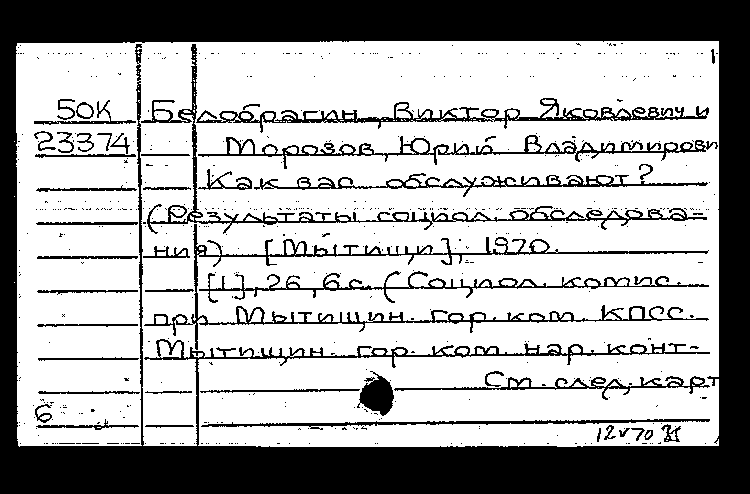 1
50К Белобрагин, Виктор Яковлевич и
23374 Морозов, Юрий Владимирови
Как вас обслуживают?
(Результаты социол. обследова-
ния) [Мытищи], 1970.
[1], 26, 6 с. (Социол. комис.
при Мытищин. гор. ком. КПСС.
Мытищин. гор. ком. нар. конт-
См. след. карт
6
12 V 70